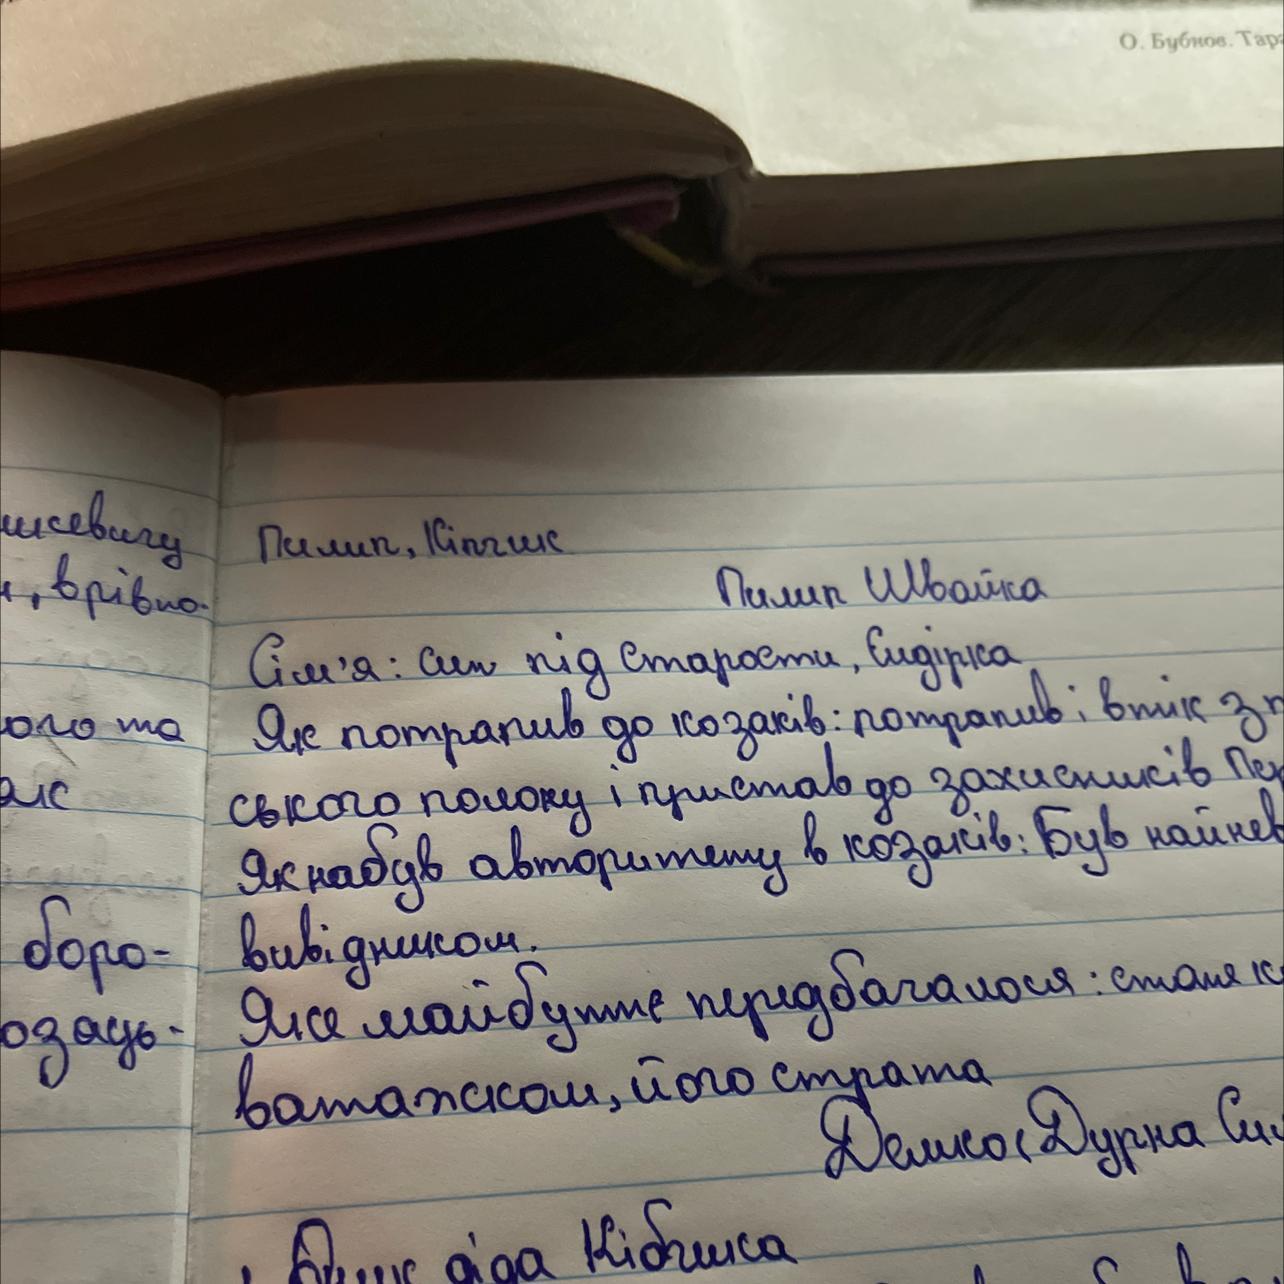 О. Бубнов. Тара
ишевичу
, врівно-
ого та
боро-
озаць-
Пилип, Кіпчик
Пилип Швайка
Сім'я: син під старости, Єндірка
Як потрапив до козаків: потрапив і втік з
ського полону і пристав до захисників Пер
Як набув авторитету в козаків: Був найнев
вивідником.
Яке майбутнє передбачалося: стане к
ватажком, його страта
Демко (Дурна Си
діда Кібчика